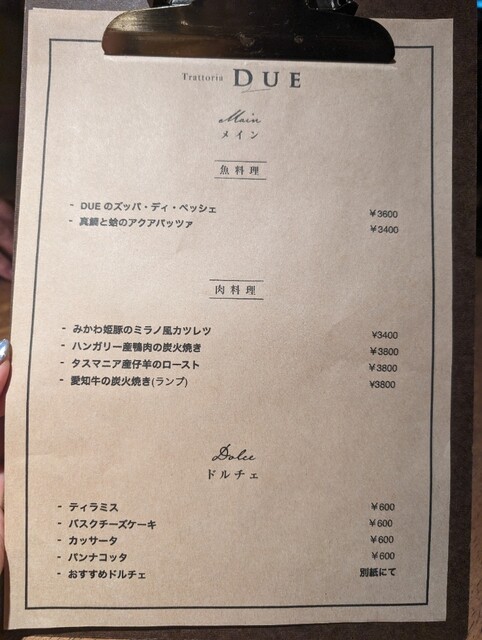 Trattoria DUE
Main
メイン
魚料理
- DUEのズッパ・ディ・ペッシェ ¥3600
- 真鯛と蛤のアクアパッツァ ¥3400
肉料理
- みかわ姫豚のミラノ風カツレツ ¥3400
- ハンガリー産鴨肉の炭火焼き ¥3800
- タスマニア産仔羊のロースト ¥3800
- 愛知牛の炭火焼き(ランプ) ¥3800
Dolce
ドルチェ
- ティラミス ¥600
- バスクチーズケーキ ¥600
- カッサータ ¥600
- パンナコッタ ¥600
- おすすめドルチェ 別紙にて